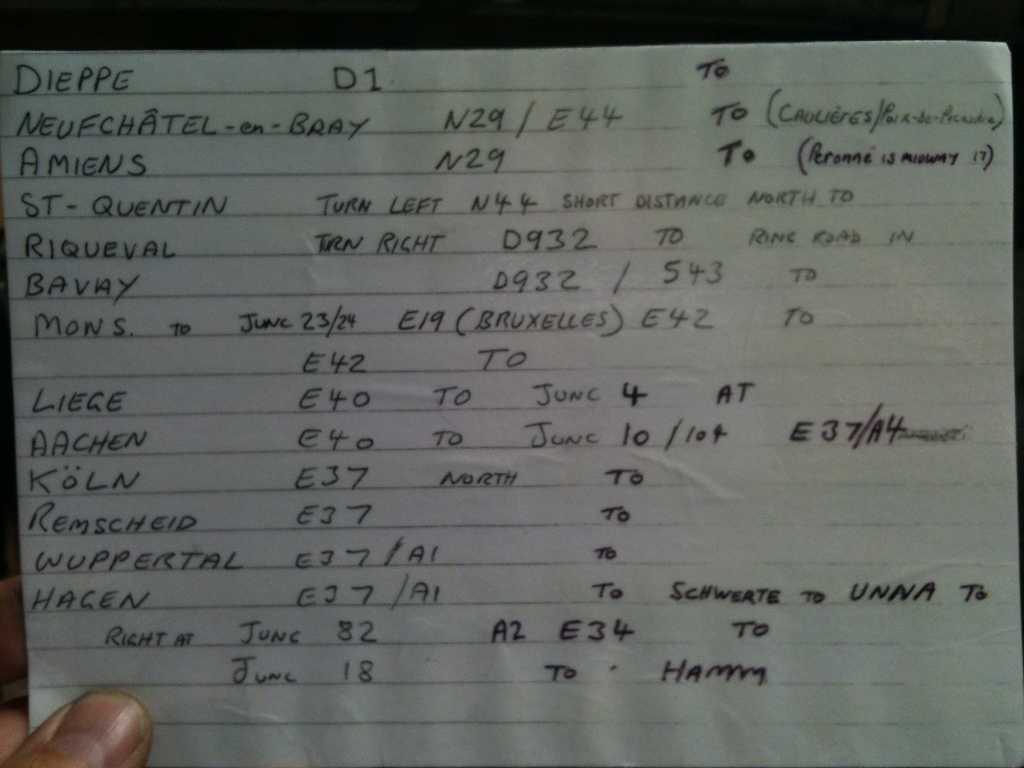 DIEPPE D1 TO
NEUFCHÂTEL-en-BRAY N29 / E44 TO (CAULIÈRES/Poix-de-Picardie)
AMIENS N29 TO (Peronné is midway 17)
ST-QUENTIN TURN LEFT N44 SHORT DISTANCE NORTH TO
RIQUEVAL TRN RIGHT D932 TO RING ROAD IN
BAVAY D932 / 543 TO
MONS. TO JUNC 23/24 E19 (BRUXELLES) E42 TO
E42 TO
LIEGE E40 TO JUNC 4 AT
AACHEN E40 TO JUNC 10/104 E37/A4
KÖLN E37 NORTH TO
REMSCHEID E37 TO
WUPPERTAL E37/A1 TO
HAGEN E37/A1 TO SCHWERTE TO UNNA TO
RIGHT AT JUNC 82 A2 E34 TO
JUNC 18 TO HAMM